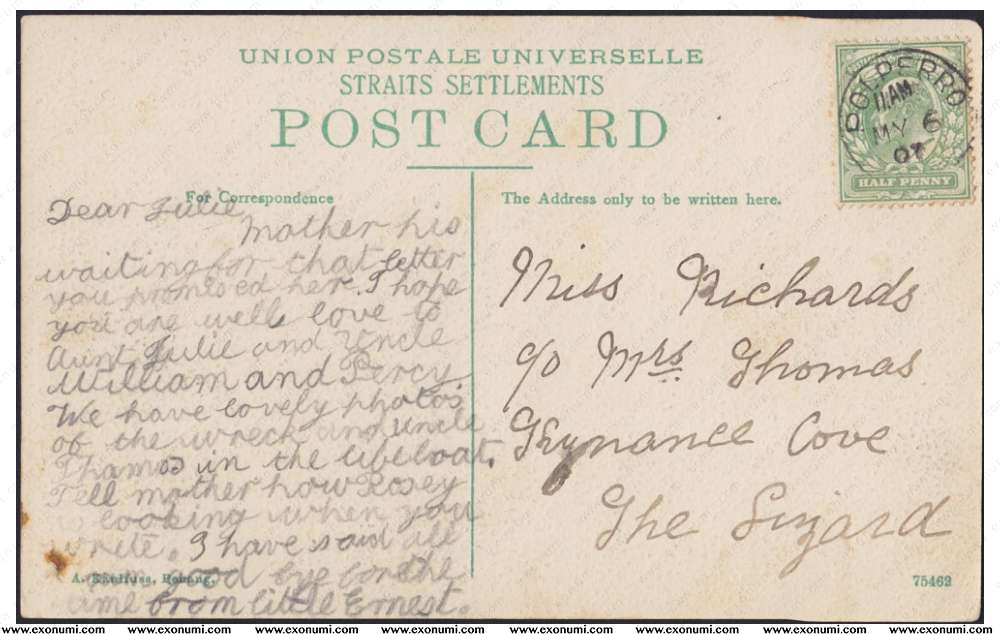 UNION POSTALE UNIVERSELLE
STRAITS SETTLEMENTS
POST CARD
POLPERRO
11 AM
MY 6
07
HALF PENNY
For Correspondence
The Address only to be written here.
Dear Julie
Mother his
waiting for that letter
you promised her. I hope
you are well love to
Aunt Julie and Uncle
William and Percy.
We have lovely photos
of the wreck and uncle
Thamos in the lifeboat.
Tell mother how Rosey
is looking when you
write. I have said all
good bye for the
time from little Ernest.
Miss Richards
c/o Mrs. Thomas
Kynance Cove
The Lizard
A. Kaulfuss, Penang.
75462
www.exonumi.com www.exonumi.com www.exonumi.com www.exonumi.com www.exonumi.com www.exonumi.com www.exonumi.com www.exonumi.com